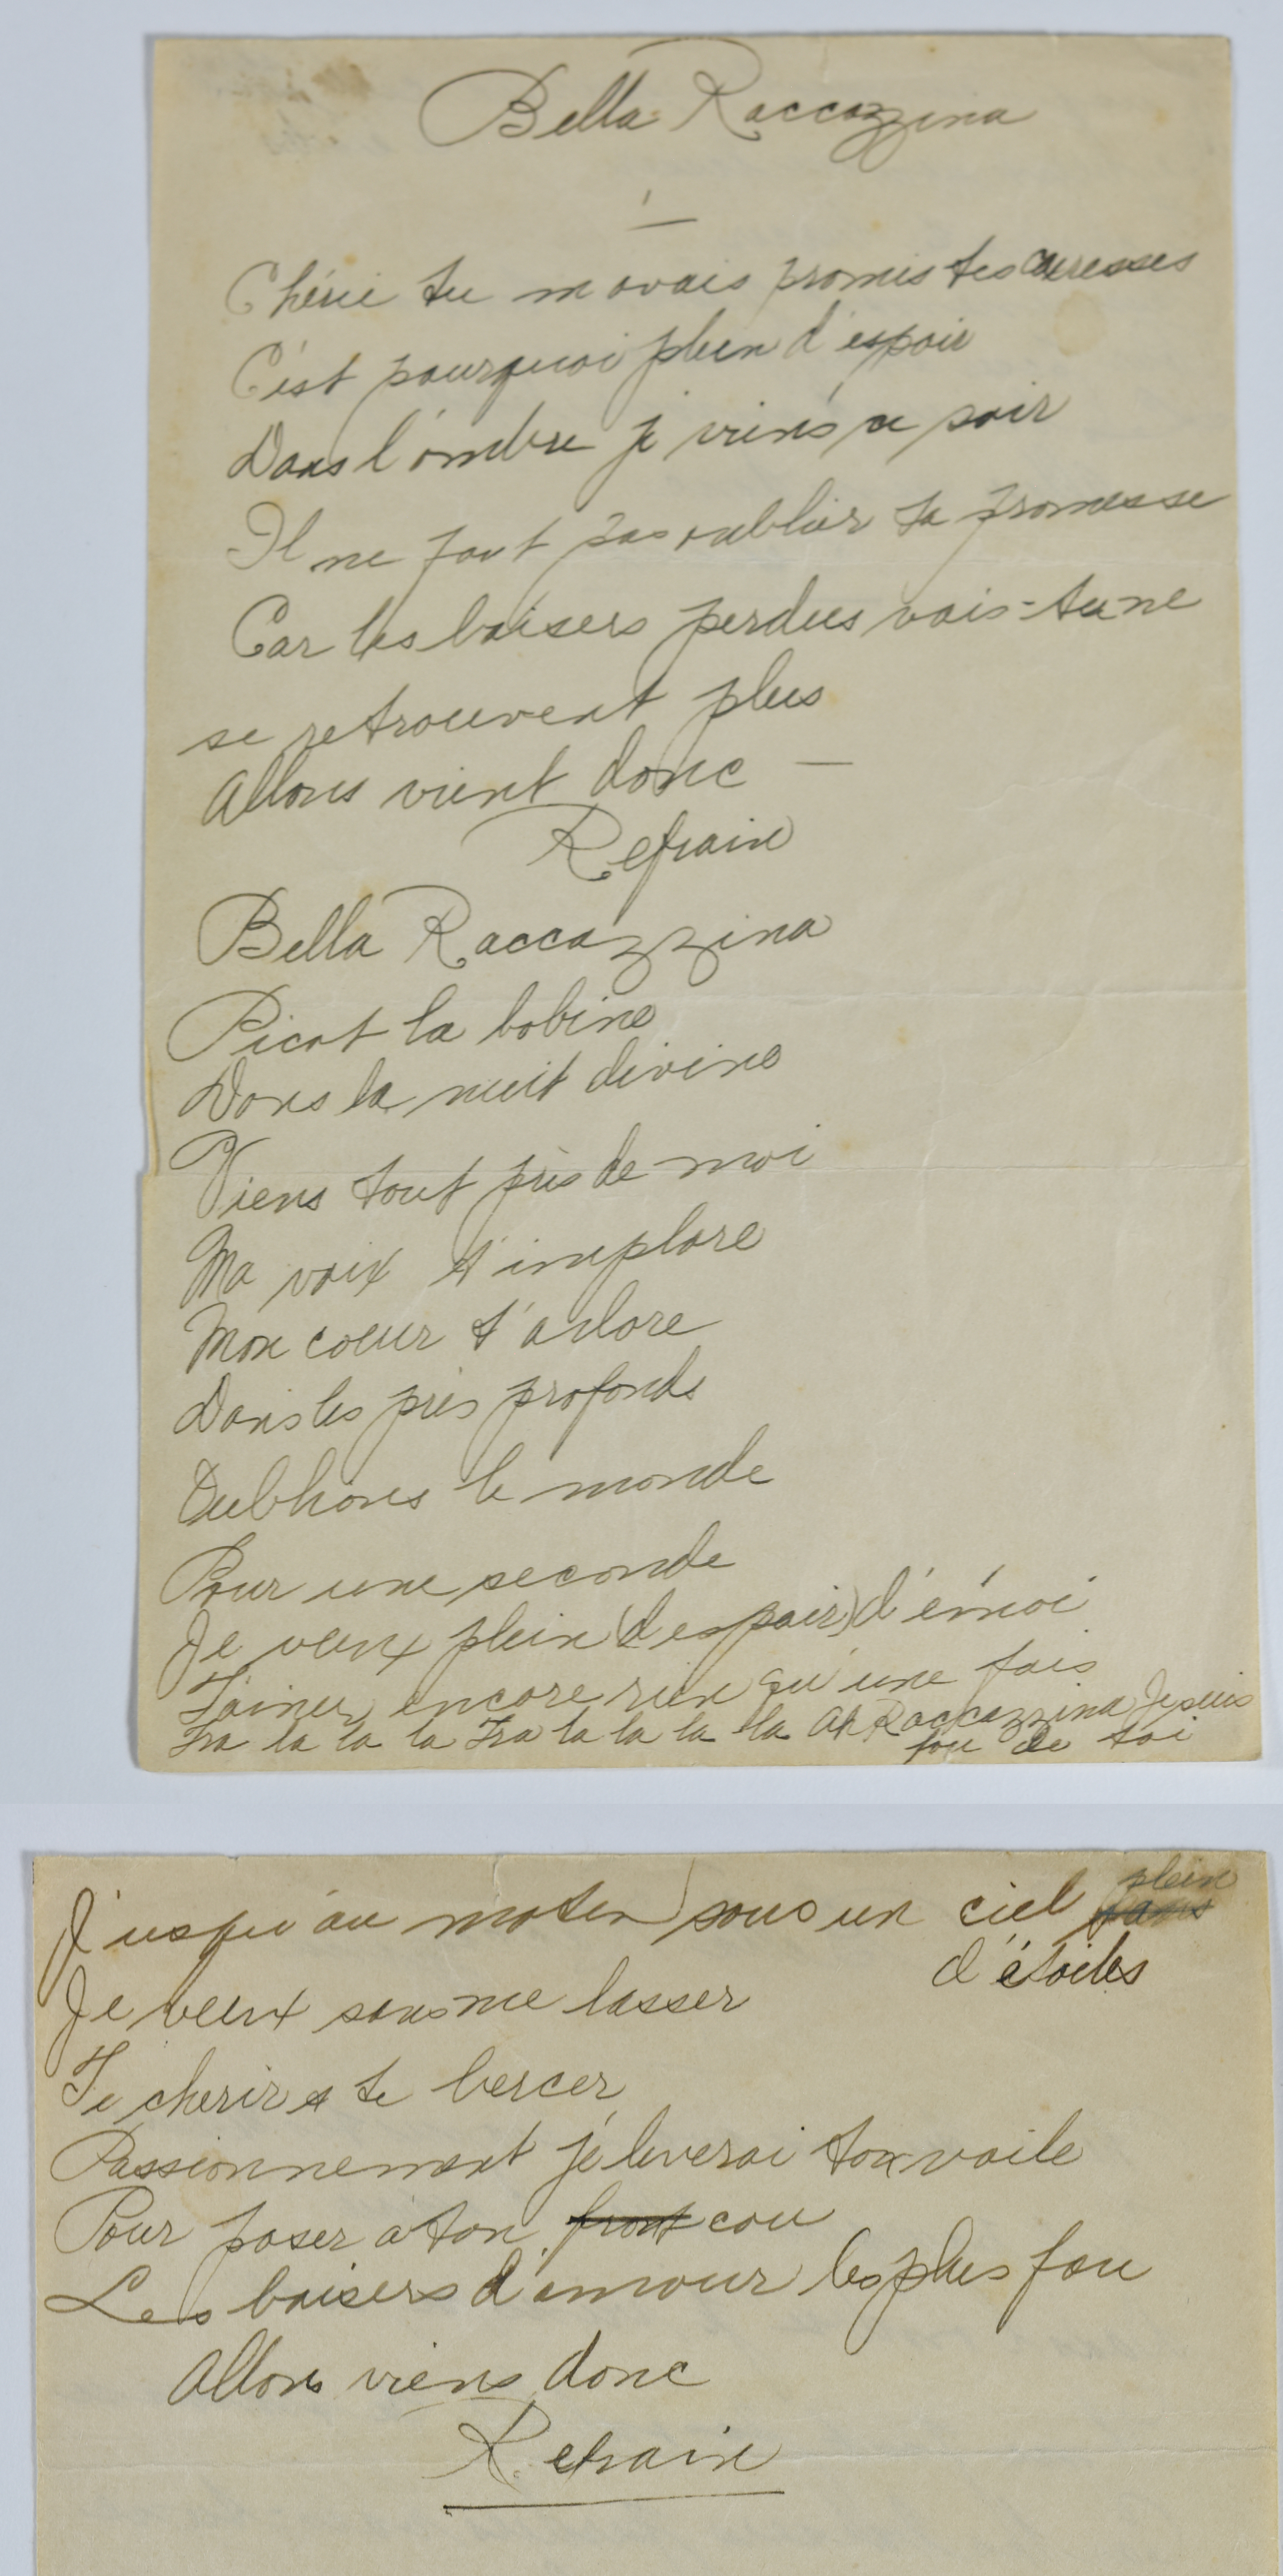 Bella Raccazzina
Chérie tu m avais promis tes caresses
C'est pourquoi plein d'espoir
Dans l'ombre je viens ce soir
Il ne faut pas oublier ta promesse
Car les baisers perdus vois-tu ne
se retrouvent plus
Allons vient donc —
Refrain
Bella Raccazzina
Picat la bobine
Dans la nuit divine
Viens tout près de moi
Ma voix t'implore
Mon coeur t'adore
Dans les prés profonds
Oublions le monde
Pour une seconde
Je veux plein (d espoir) d'émoi
T'aimer encore rien qu'une fois
Tra la la la Tra la la la la Ah Raccazzina Je suis
fou de toi
J'usqu'au matin sous un ciel plein
d'étoiles
Je veux sans me lasser
Te cherir et te bercer
Passionnement je leverai ton voile
Pour poser à ton front cou
Les baisers d'amour les plus fou
Allons viens donc
Refrain